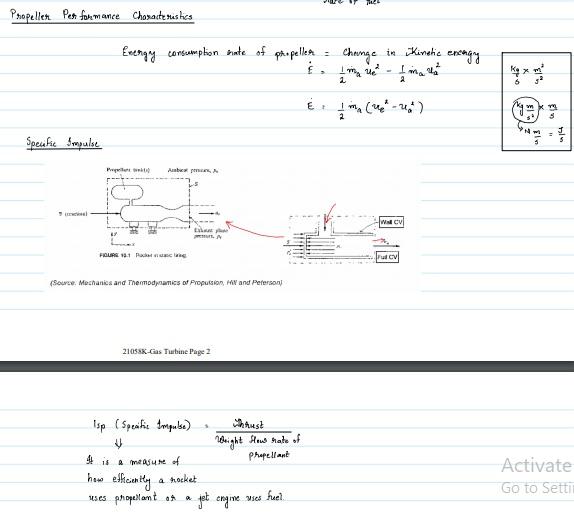 Propeller Performance Characteristics
Energy consumption rate of propeller = Change in Kinetic energy
Ė = 1/2 ṁa ue² - 1/2 ṁa ua²
Ė = 1/2 ṁa (ue² - ua²)
kg/s × m²/s²
kg m/s² × m/s
N m/s = J/s
Specific Impulse
Propellant tank(s) Ambient pressure, Pa
S
T (reaction)
ue
Exhaust plane
pressure, Pe
y
x
FIGURE 10.1 Rocket in static firing.
Wall CV
Full CV
(Source: Mechanics and Thermodynamics of Propulsion, Hill and Peterson)
21058K-Gas Turbine Page 2
Isp (Specific Impulse) = Thrust
Weight flow rate of
propellant
It is a measure of
how efficiently a rocket
uses propellant or a jet engine uses fuel.
Activate
Go to Setti